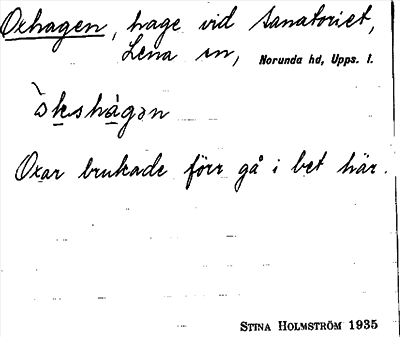 Oxhagen, hage vid sanatoriet,
Lena sn, Norunda hd, Upps. l.
`ò̱kshàgən
Oxar brukade förr gå i bet här.
STINA HOLMSTRÖM 1935